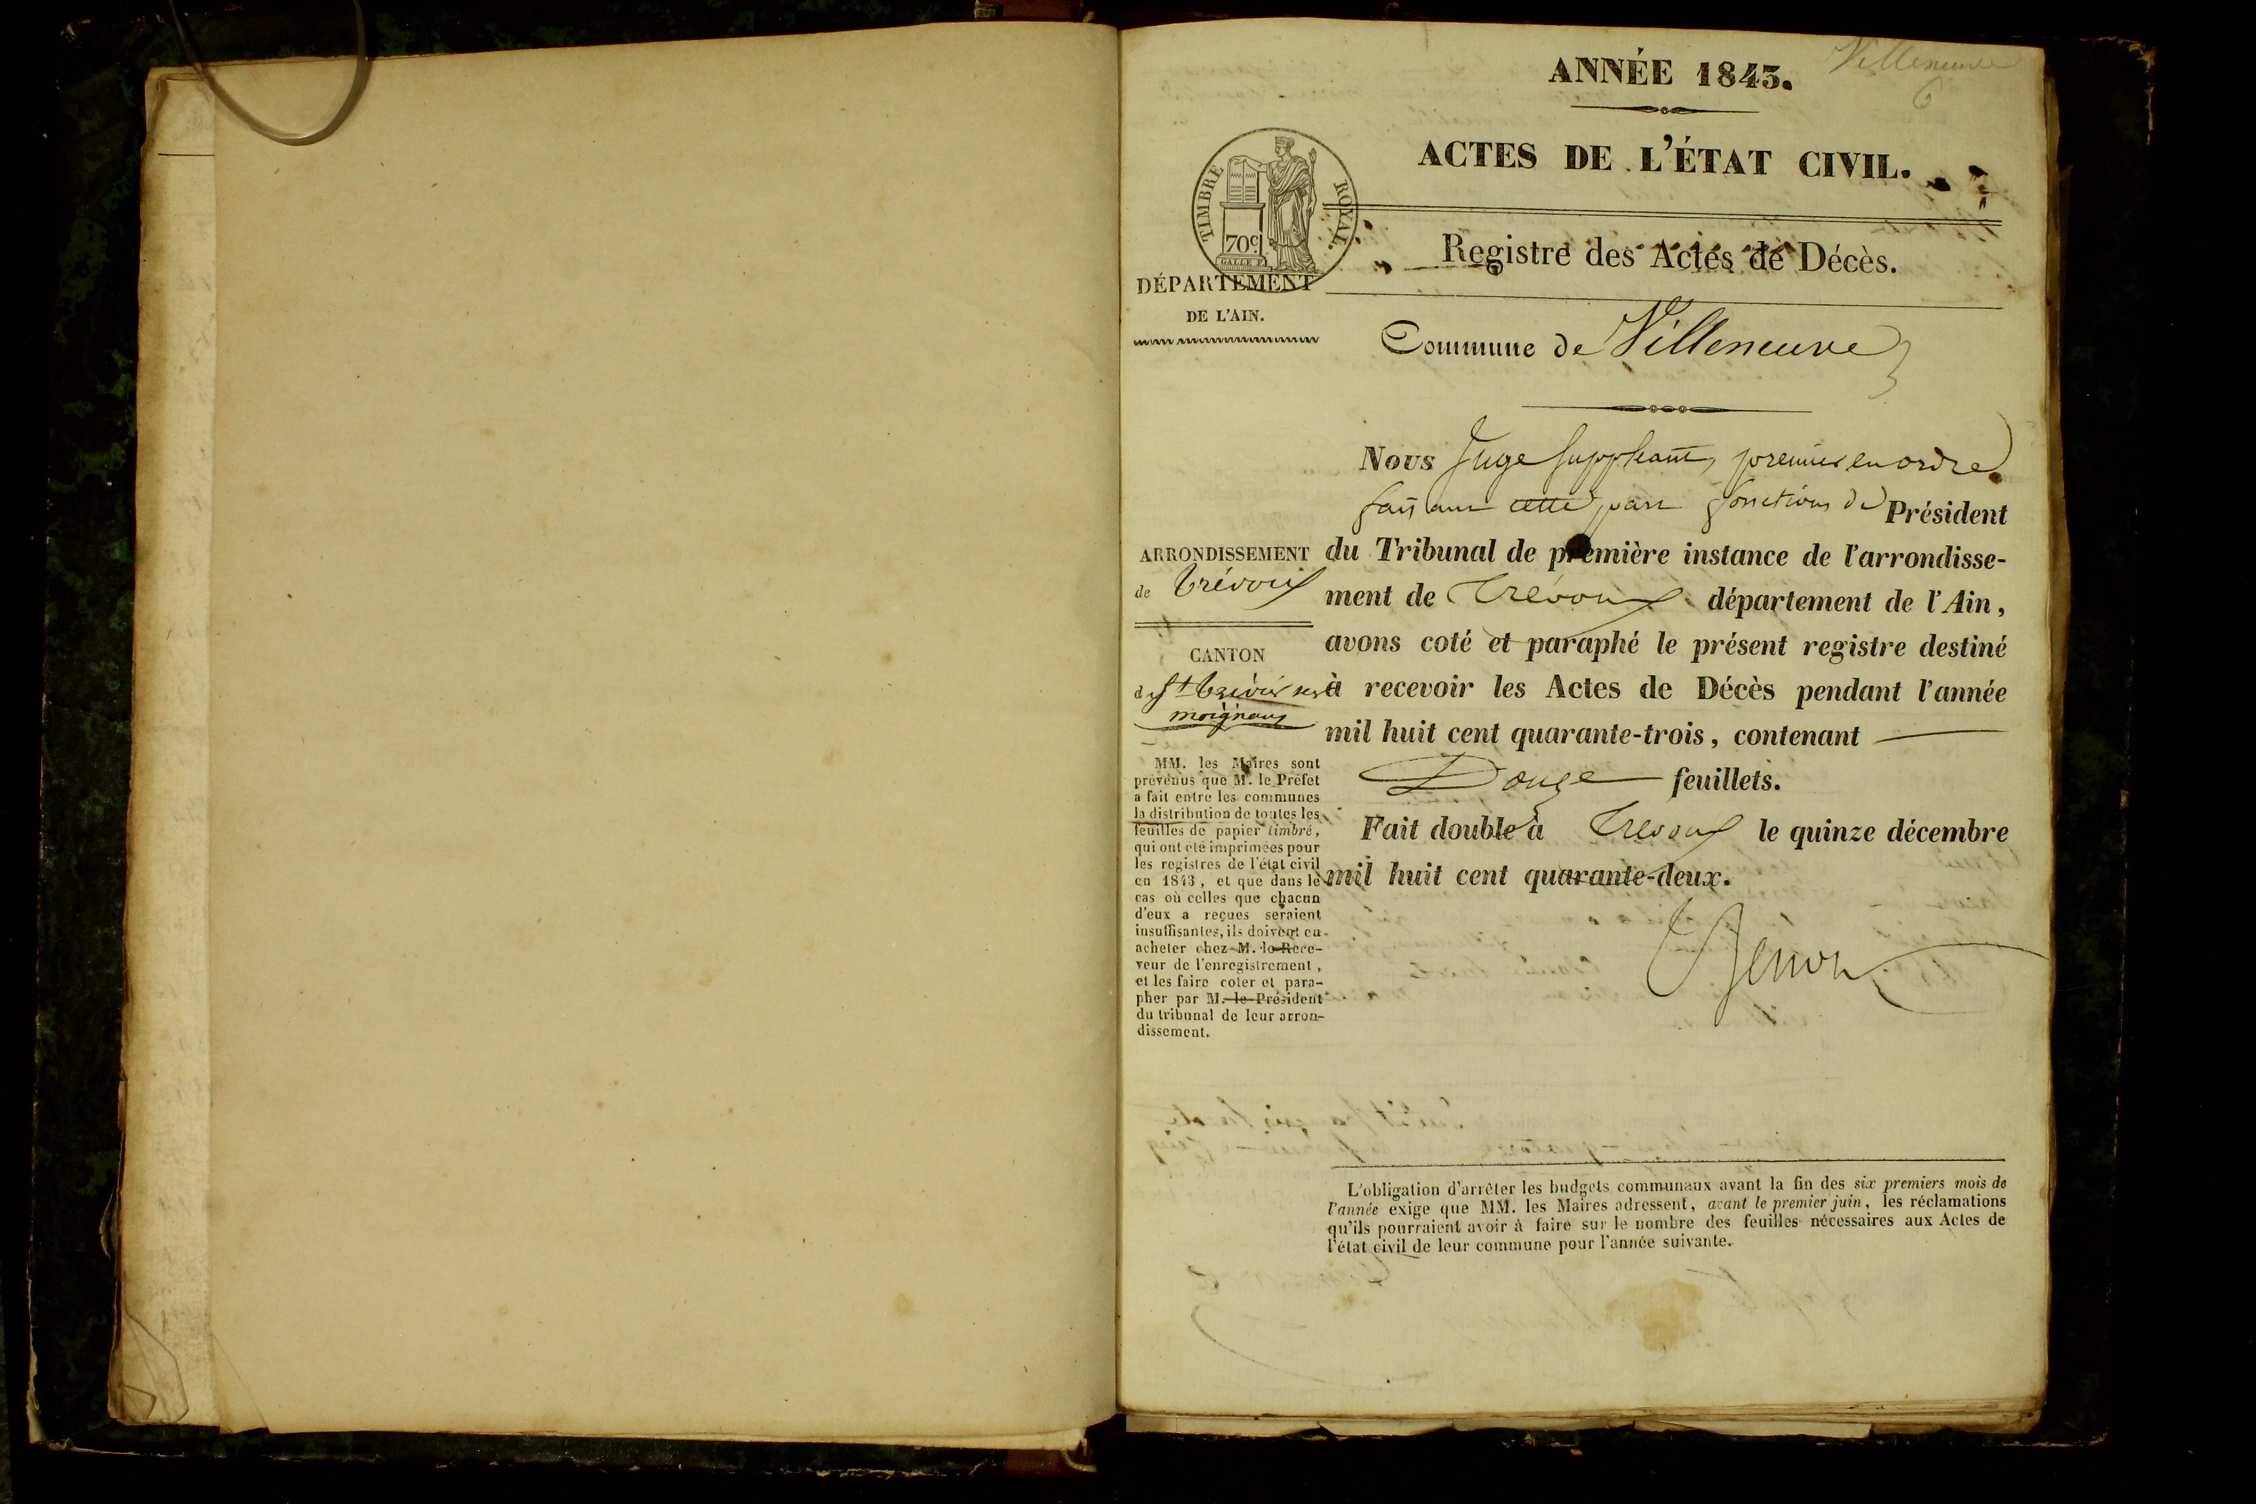 Villeneuve
6
ANNÉE 1843.
ACTES DE L'ÉTAT CIVIL.
TIMBRE ROYAL.
70c
GALLE F.
Registre des Actes de Décès.
DÉPARTEMENT
DE L'AIN.
Commune de Villeneuve
ARRONDISSEMENT
de Trévoux
CANTON
de St Trivier sur
moignans
MM. les Maires sont
prévenus que M. le Préfet
a fait entre les communes
la distribution de toutes les
feuilles de papier timbré,
qui ont été imprimées pour
les registres de l'état civil
en 1843, et que dans le
cas où celles que chacun
d'eux a reçues seraient
insuffisantes, ils doivent en
acheter chez M. le Rece-
veur de l'enregistrement,
et les faire coter et para-
pher par M. le Président
du tribunal de leur arron-
dissement.
Nous Juge suppléant, premier en ordre
fonctions de Président
du Tribunal de première instance de l'arrondisse-
ment de Trévoux département de l'Ain,
avons coté et paraphé le présent registre destiné
à recevoir les Actes de Décès pendant l'année
mil huit cent quarante-trois, contenant
Douze feuillets.
Fait double à Trévoux le quinze décembre
mil huit cent quarante-deux.
L'obligation d'arrêter les budgets communaux avant la fin des six premiers mois de
l'année exige que MM. les Maires adressent, avant le premier juin, les réclamations
qu'ils pourraient avoir à faire sur le nombre des feuilles nécessaires aux Actes de
l'état civil de leur commune pour l'année suivante.